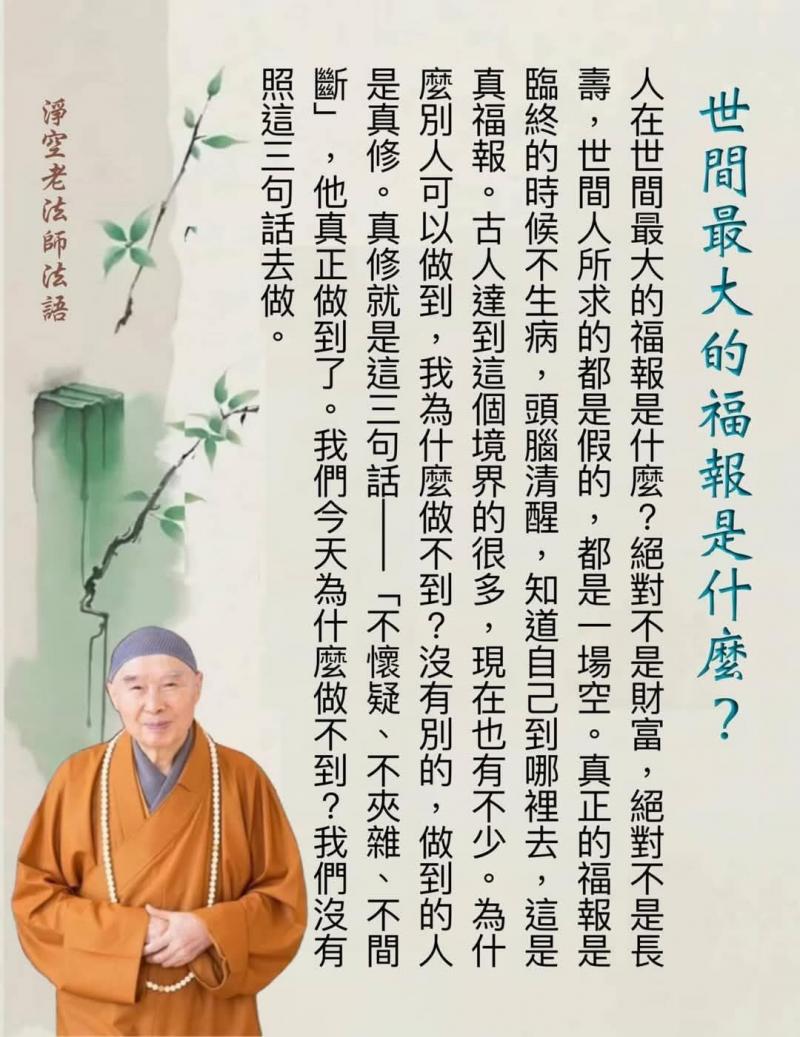 世間最大的福報是什麼？
人在世間最大的福報是什麼？絕對不是財富，絕對不是長
壽，世間人所求的都是假的，都是一場空。真正的福報是
臨終的時候不生病，頭腦清醒，知道自己到哪裡去，這是
真福報。古人達到這個境界的很多，現在也有不少。為什
麼別人可以做到，我為什麼做不到？沒有別的，做到的人
是真修。真修就是這三句話——「不懷疑、不夾雜、不間
斷」，他真正做到了。我們今天為什麼做不到？我們沒有
照這三句話去做。
淨空老法師法語